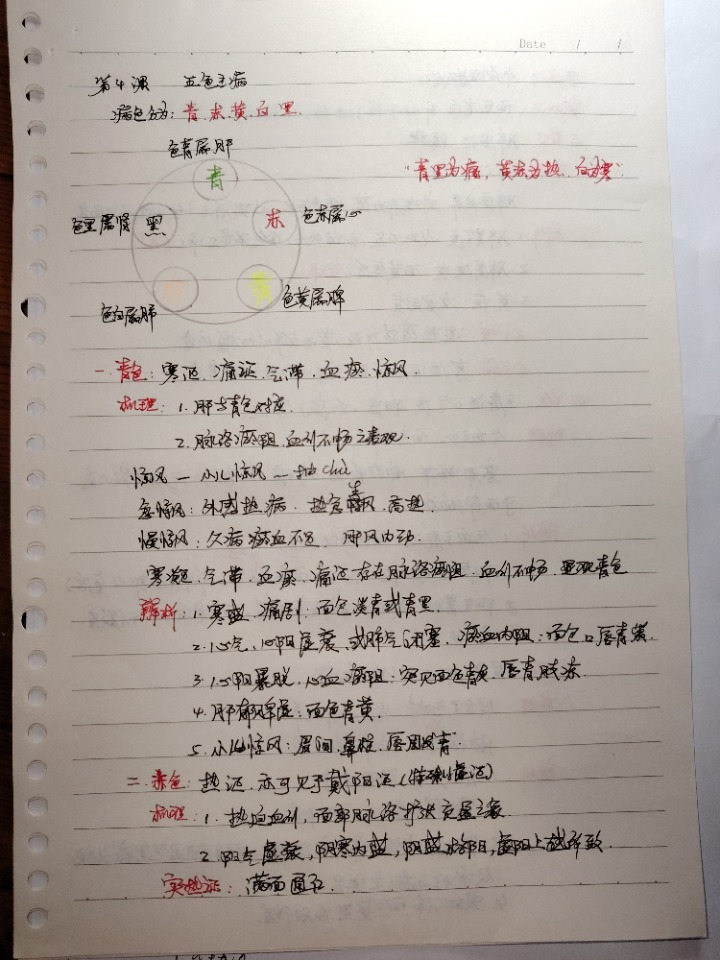 Date / /
第4课 五色主病
病色分为：青 赤 黄 白 黑.
色青属肝
青
"青黑为痛，黄赤为热，白为寒".
色黑属肾 黑
赤 色赤属心
色白属肺
黄 色黄属脾
一. 青色：寒证、痛证、气滞、血瘀、惊风.
机理：1. 肝与青色对应.
2. 脉络瘀阻、血行不畅之表现.
惊风 — 小儿惊风 — 抽chù
急惊风：外感热病、热急生风、高热.
慢惊风：久病 血不足、肝风内动.
寒凝、气滞、血瘀、痛证存在脉络瘀阻、血行不畅、显现青色
辨析：1. 寒盛、痛剧：面色淡青或青黑.
2. 心气、心阳虚衰、或肺气闭塞、瘀血内阻：面色口唇青紫.
3. 心阳暴脱、心血瘀阻：突见面色青灰、唇青肢冻
4. 肝郁脾虚：面色青黄.
5. 小儿惊风：眉间、鼻柱、唇周发青.
二. 赤色：热证、亦可见于戴阳证（特殊证）
机理：1. 热迫血行，面部脉络扩张充盈之象
2. 阳气虚衰，阴寒内盛，阴盛格阳，虚阳上越所致.
实热证：满面通红.